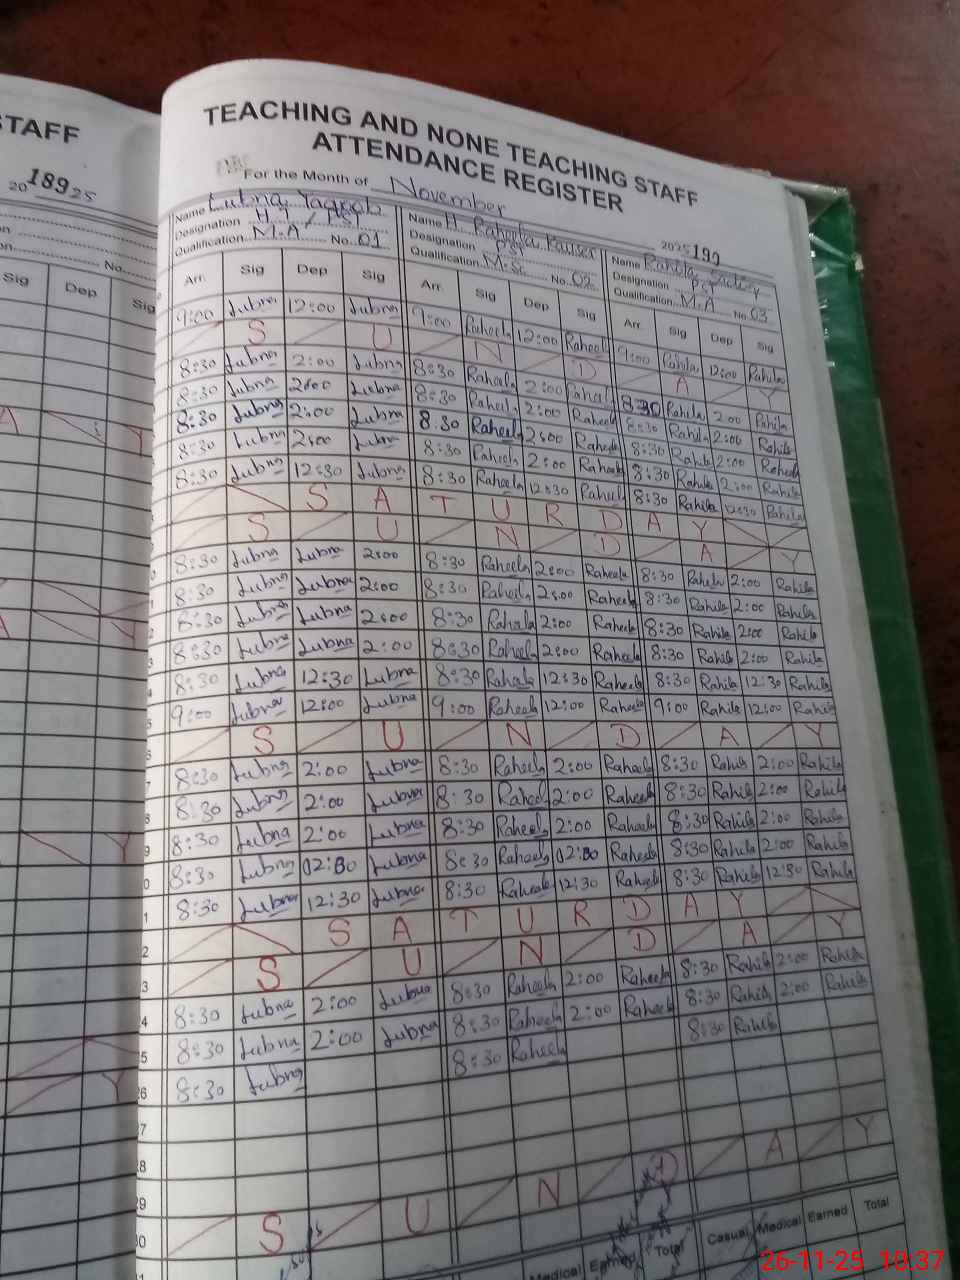 STAFF
20 189 25
No.
Sig Dep Sig
TEACHING AND NONE TEACHING STAFF
ATTENDANCE REGISTER
For the Month of November 2025 190
Name Lubna Yaqoob Name H. Raheela Kauser Name Rahila
Designation H.T / PST Designation PST Designation PST
Qualification M.A No. 01 Qualification M.Sc No. 02 Qualification M.A No. 03
Arr. Sig Dep Sig Arr. Sig Dep Sig Arr. Sig Dep Sig
9:00 Lubna 12:00 Lubna 9:00 Raheela 12:00 Raheela 9:00 Rahila 12:00 Rahila
S U N D A Y
8:30 Lubna 2:00 Lubna 8:30 Raheela 2:00 Raheela 8:30 Rahila 2:00 Rahila
8:30 Lubna 2:00 Lubna 8:30 Raheela 2:00 Raheela 8:30 Rahila 2:00 Rahila
8:30 Lubna 2:00 Lubna 8:30 Raheela 2:00 Raheela 8:30 Rahila 2:00 Raheela
8:30 Lubna 2:00 Lubna 8:30 Raheela 2:00 Raheela 8:30 Rahila 2:00 Rahila
8:30 Lubna 12:30 Lubna 8:30 Raheela 12:30 Raheela 8:30 Rahila 12:30 Rahila
S A T U R D A Y
S U N D A Y
8:30 Lubna Lubna 2:00 8:30 Raheela 2:00 Raheela 8:30 Rahila 2:00 Rahila
8:30 Lubna Lubna 2:00 8:30 Raheela 2:00 Raheela 8:30 Rahila 2:00 Rahila
8:30 Lubna Lubna 2:00 8:30 Raheela 2:00 Raheela 8:30 Rahila 2:00 Rahila
8:30 Lubna Lubna 2:00 8:30 Raheela 2:00 Raheela 8:30 Rahila 2:00 Rahila
8:30 Lubna 12:30 Lubna 8:30 Raheela 12:30 Raheela 8:30 Rahila 12:30 Rahila
9:00 Lubna 12:00 Lubna 9:00 Raheela 12:00 Raheela 9:00 Rahila 12:00 Rahila
S U N D A Y
8:30 Lubna 2:00 Lubna 8:30 Raheela 2:00 Raheela 8:30 Rahila 2:00 Rahila
8:30 Lubna 2:00 Lubna 8:30 Raheela 2:00 Raheela 8:30 Rahila 2:00 Rahila
8:30 Lubna 2:00 Lubna 8:30 Raheela 2:00 Raheela 8:30 Rahila 2:00 Rahila
8:30 Lubna 02:30 Lubna 8:30 Raheela 02:00 Raheela 8:30 Rahila 2:00 Rahila
8:30 Lubna 12:30 Lubna 8:30 Raheela 12:30 Raheela 8:30 Rahila 12:30 Rahila
S A T U R D A Y
S U N D A Y
8:30 Lubna 2:00 Lubna 8:30 Raheela 2:00 Raheela 8:30 Rahila 2:00 Rahila
8:30 Lubna 2:00 Lubna 8:30 Raheela 2:00 Raheela 8:30 Rahila 2:00 Rahila
8:30 Lubna 8:30 Raheela 8:30 Rahila
S U N D A Y
Medical Earned Total Casual Medical Earned Total
26-11-25 10:37